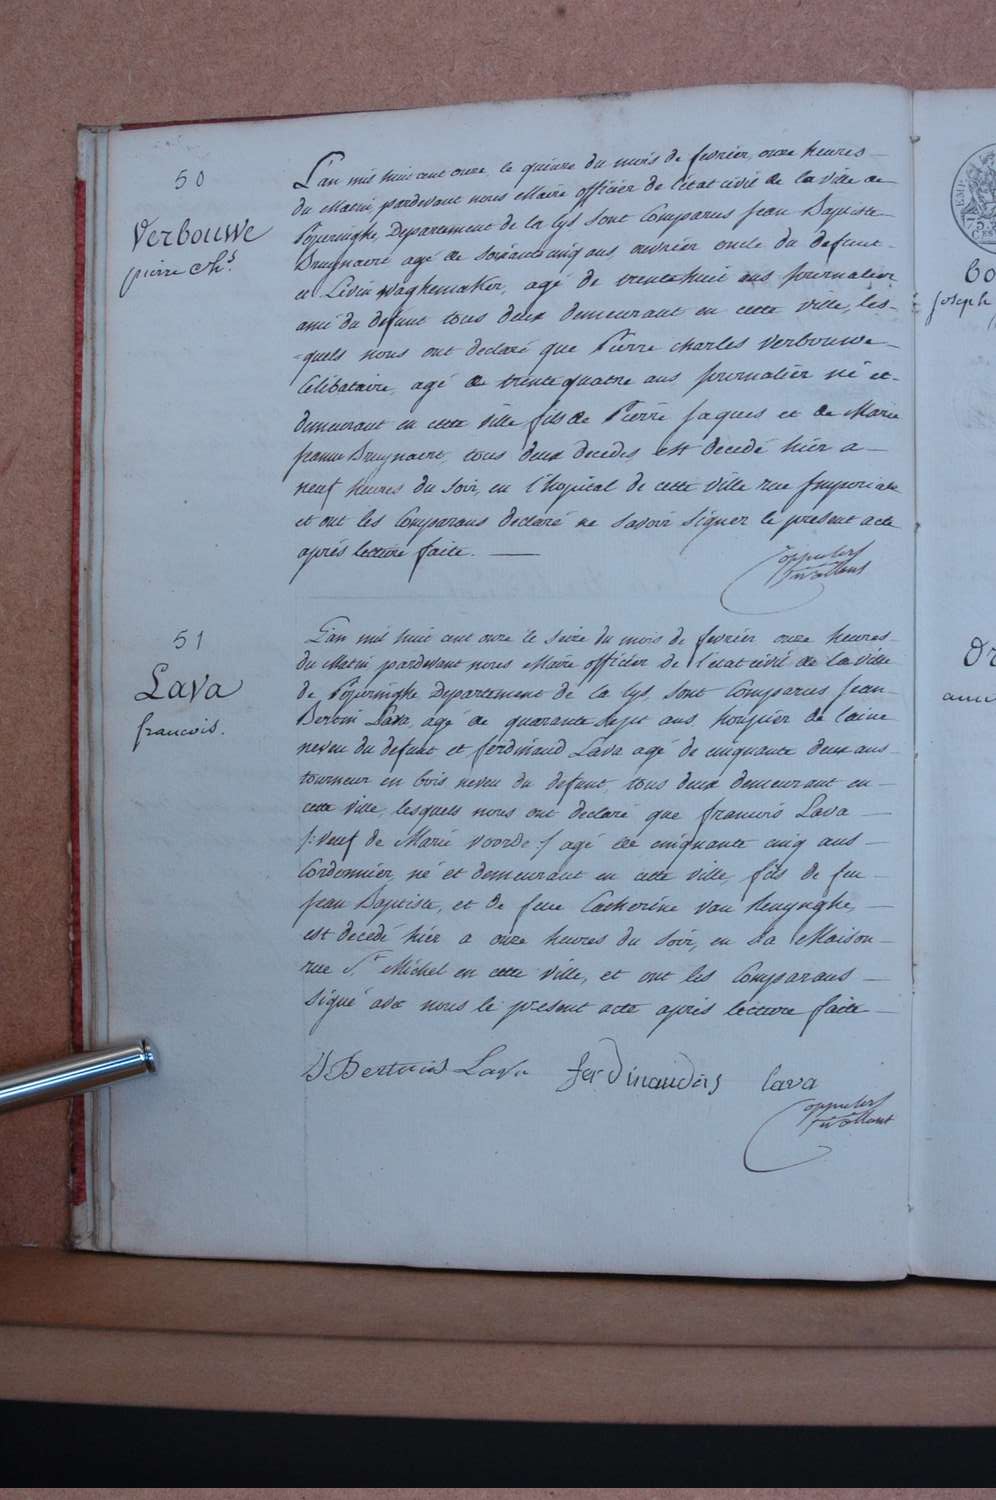 50
Verbouwe
pierre Ch.s
L'an mil huit cent onze le quinze du mois de fevrier, onze heures
du Matin, pardevant nous Maire officier de l'état civil de la ville de
Poperinghe, Departement de la Lys sont Comparus Jean Baptiste
Bruynaert agé de soixante cinq ans, ouvrier oncle du defunt
et Livin Waghemaker, agé de trente huit ans, journalier
ami du defunt tous deux demeurant en cette ville, les-
-quels nous ont declaré que Pierre Charles Verbouwe
Celibataire, agé de trente quatre ans, journalier né et
demeurant en cette ville fils de Pierre Jaques et de Marie
jeanne Bruynaert, tous deux decedes, est decedé hier a
neuf heures du soir, en l'hopital de cette ville rue Imperiale
et ont les Comparans declaré ne savoir signer le present acte
après lecture faite.
51
Lava
francois.
L'an mil huit cent onze le seize du mois de fevrier onze heures
du Matin, pardevant nous Maire officier de l'état civil de la ville
de Poperinghe Departement de la Lys, sont Comparus Jean
Bertin Lava, agé de quarante sept ans, houpier de laine
neveu du defunt et ferdinand Lava agé de cinquante deux ans
tourneur en bois neveu du defunt, tous deux demeurant en
cette ville, lesquels nous ont declaré que francois Lava
/: veuf de Marie Voorde :/ agé de cinquante cinq ans
Cordonnier, né et demeurant en cette ville, fils de feu
jean Baptiste, et de feue Catherine van
est decedé hier a onze heures du soir, en sa Maison
rue St Michel en cette ville, et ont les Comparans
signé avec nous le present acte après lecture faite
Bertin Lava ferdinandus lava
bo
joseph